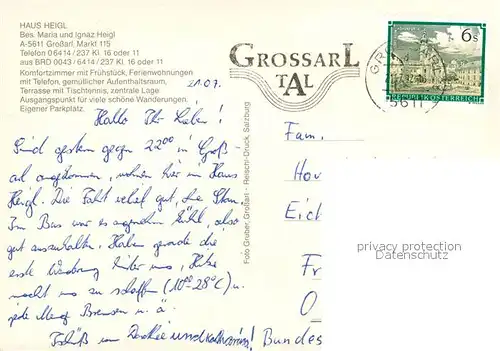 HAUS HEIGL
Bes. Maria und Ignaz Heigl
A-5611 Großarl, Markt 115
Telefon 06414/237 Kl. 16 oder 11
aus BRD 0043/6414/237 Kl. 16 oder 11
Komfortzimmer mit Frühstück, Ferienwohnungen
mit Telefon, gemütlicher Aufenthaltsraum,
Terrasse mit Tischtennis, zentrale Lage.
Ausgangspunkt für viele schöne Wanderungen.
Eigener Parkplatz.
GROSSARL
TAL
6s
REPUBLIK ÖSTERREICH
5611
21.07.
Hallo Ihr Lieben!
Sind gestern gegen 22⁰⁰ in Groß-
arl angekommen, wohnen hier im Haus
Heigl. Die Fahrt verlief gut, die Stim.
Im Bus war es angenehm kühl, also
gut auszuhalten. Haben gerade die
erste Wanderung hinter uns, Hitze
macht uns zu schaffen (10⁰⁰ 28°C) u.
jede Menge Bremsen u. ä.
Tschüß von und Kathrin!
Foto Gruber, Großarl - Reischl-Druck, Salzburg
Fam.
Hov
Eid
Fr
O
Bundes
privacy protection
Datenschutz